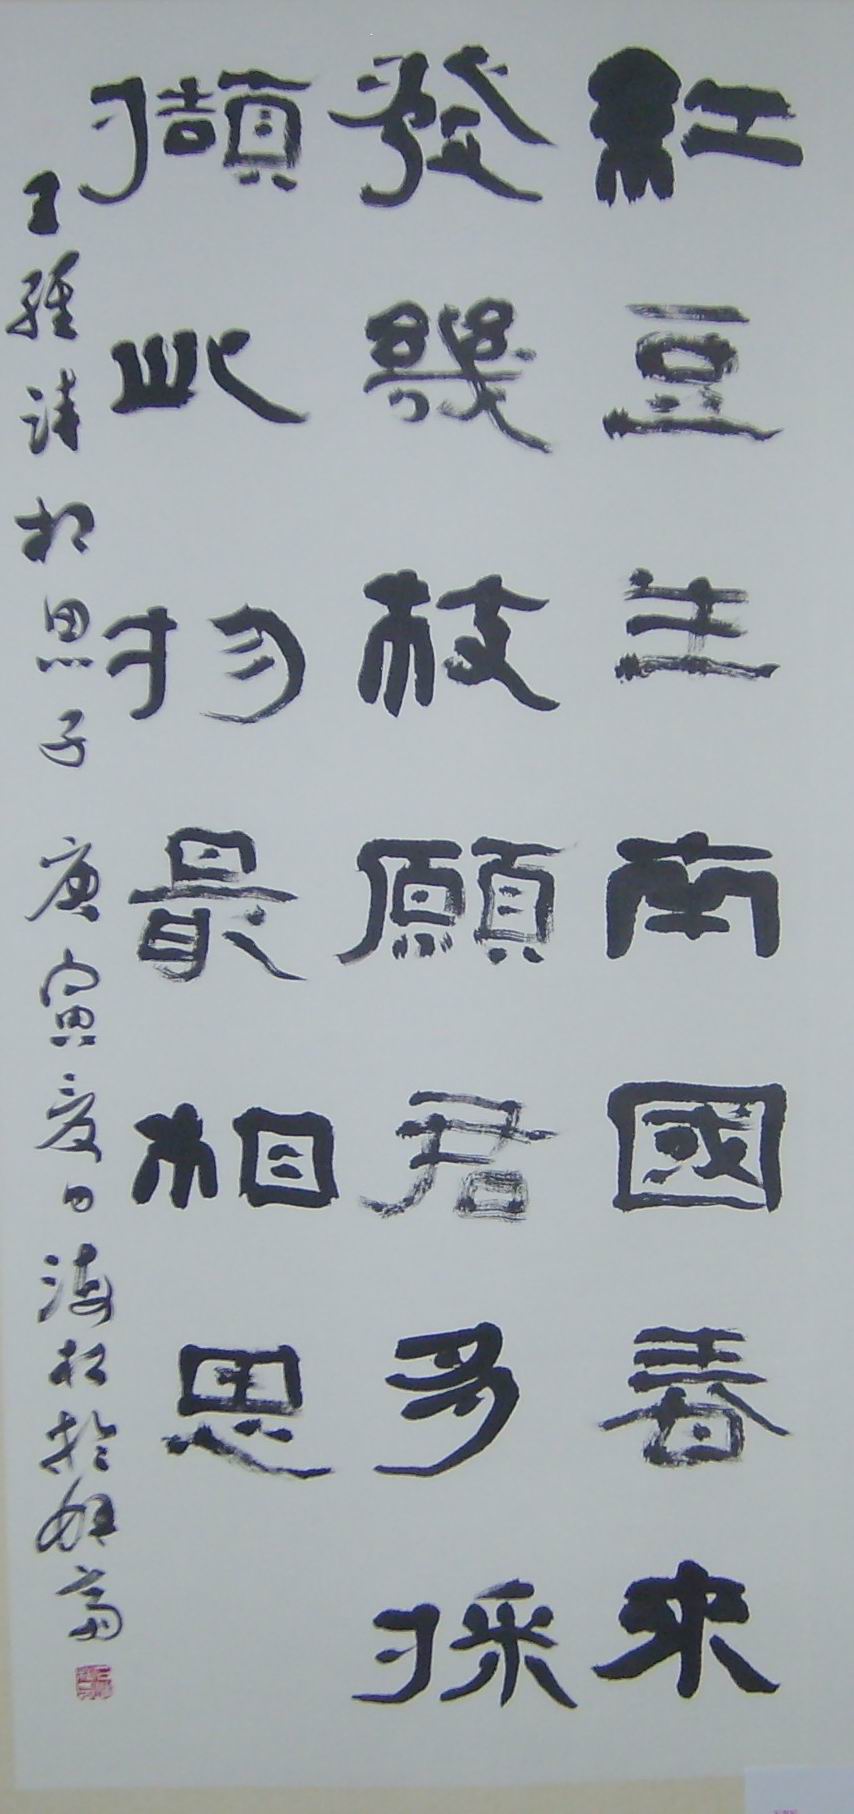 紅豆生南國春來
發幾枝願君多採
擷此物最相思
王維詩相思子庚寅夏日海松於